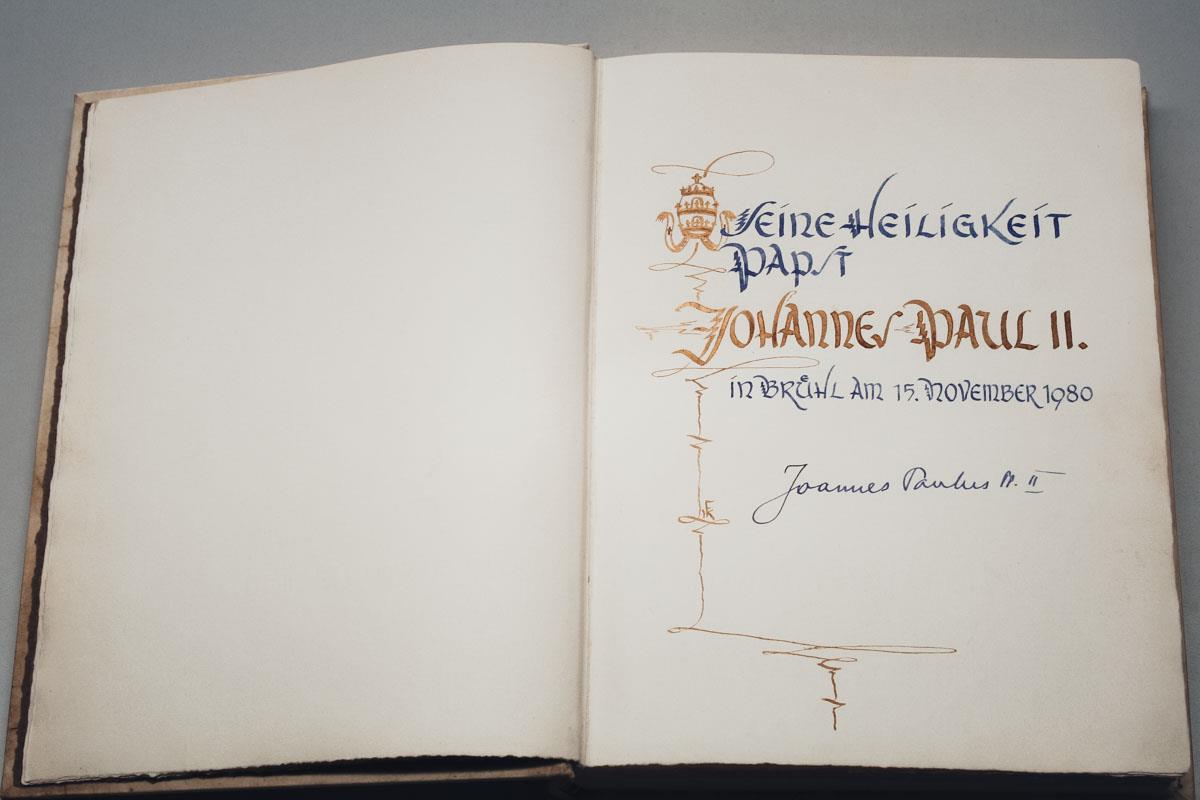 Seine Heiligkeit
Papst
Johannes Paul II.
in Brühl am 15. November 1980
Joannes Paulus PP. II